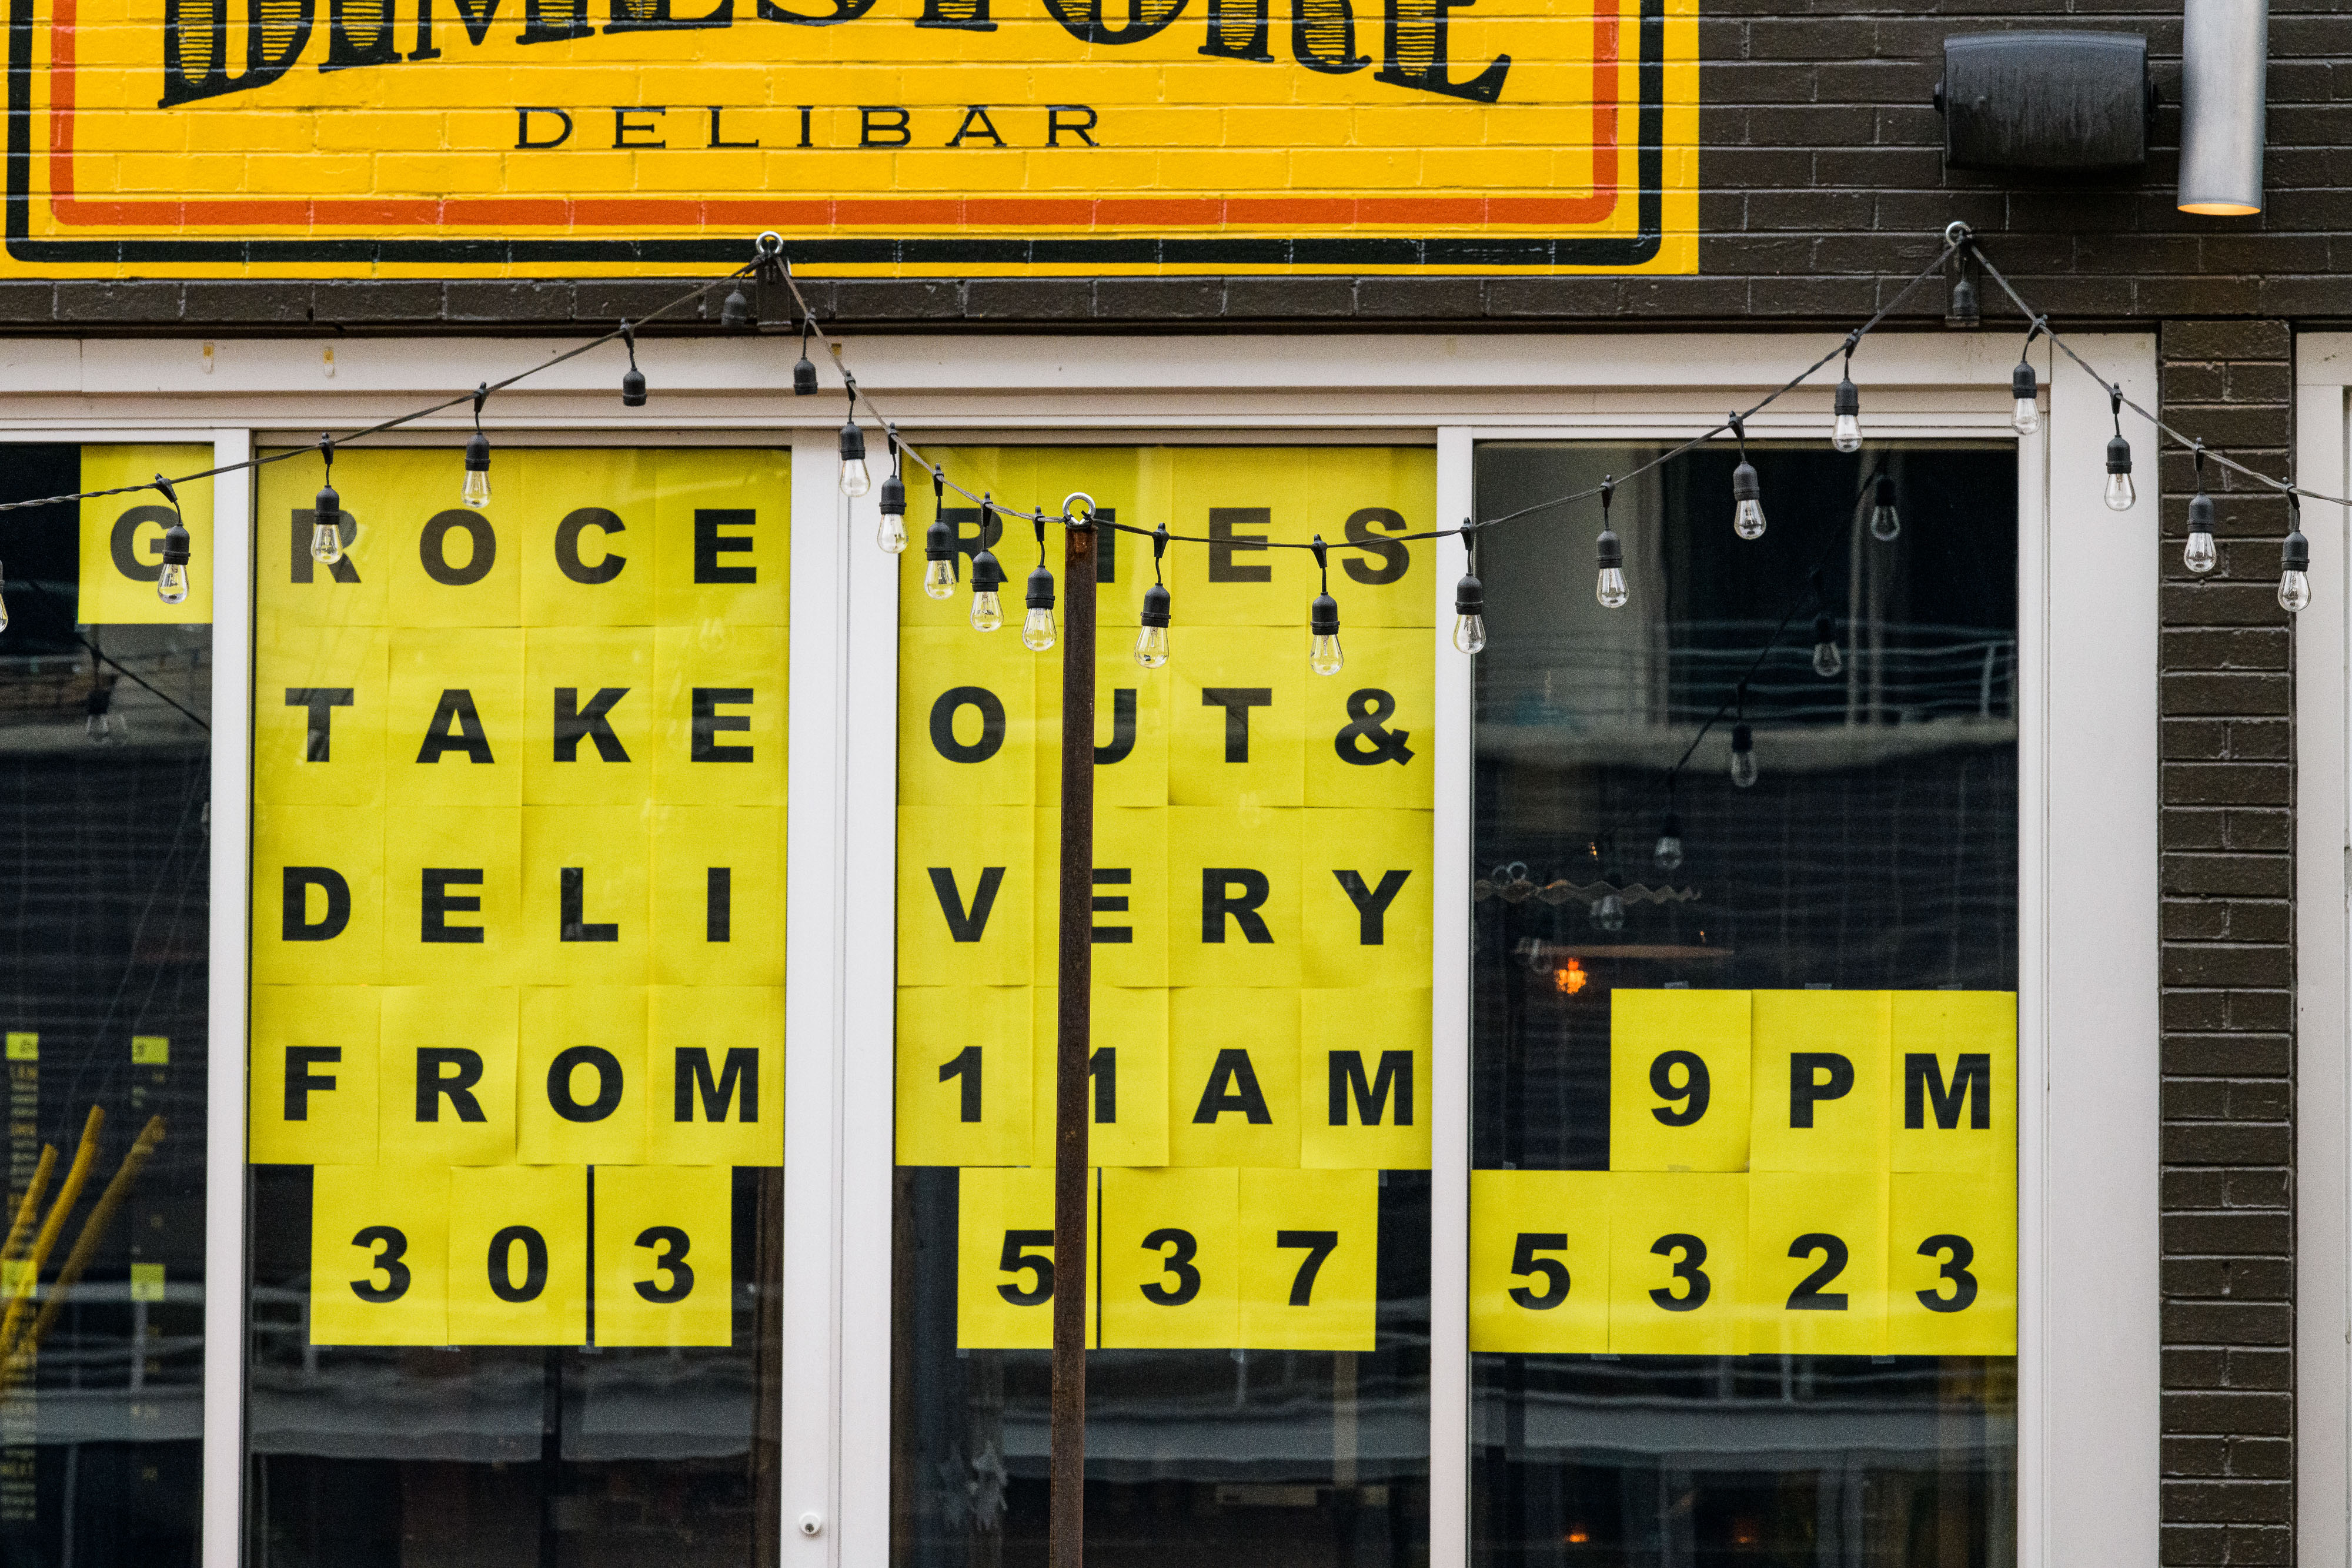 DIMESTORE
DELIBAR
GROCERIES
TAKE OUT &
DELIVERY
FROM 11AM 9PM
303 537 5323